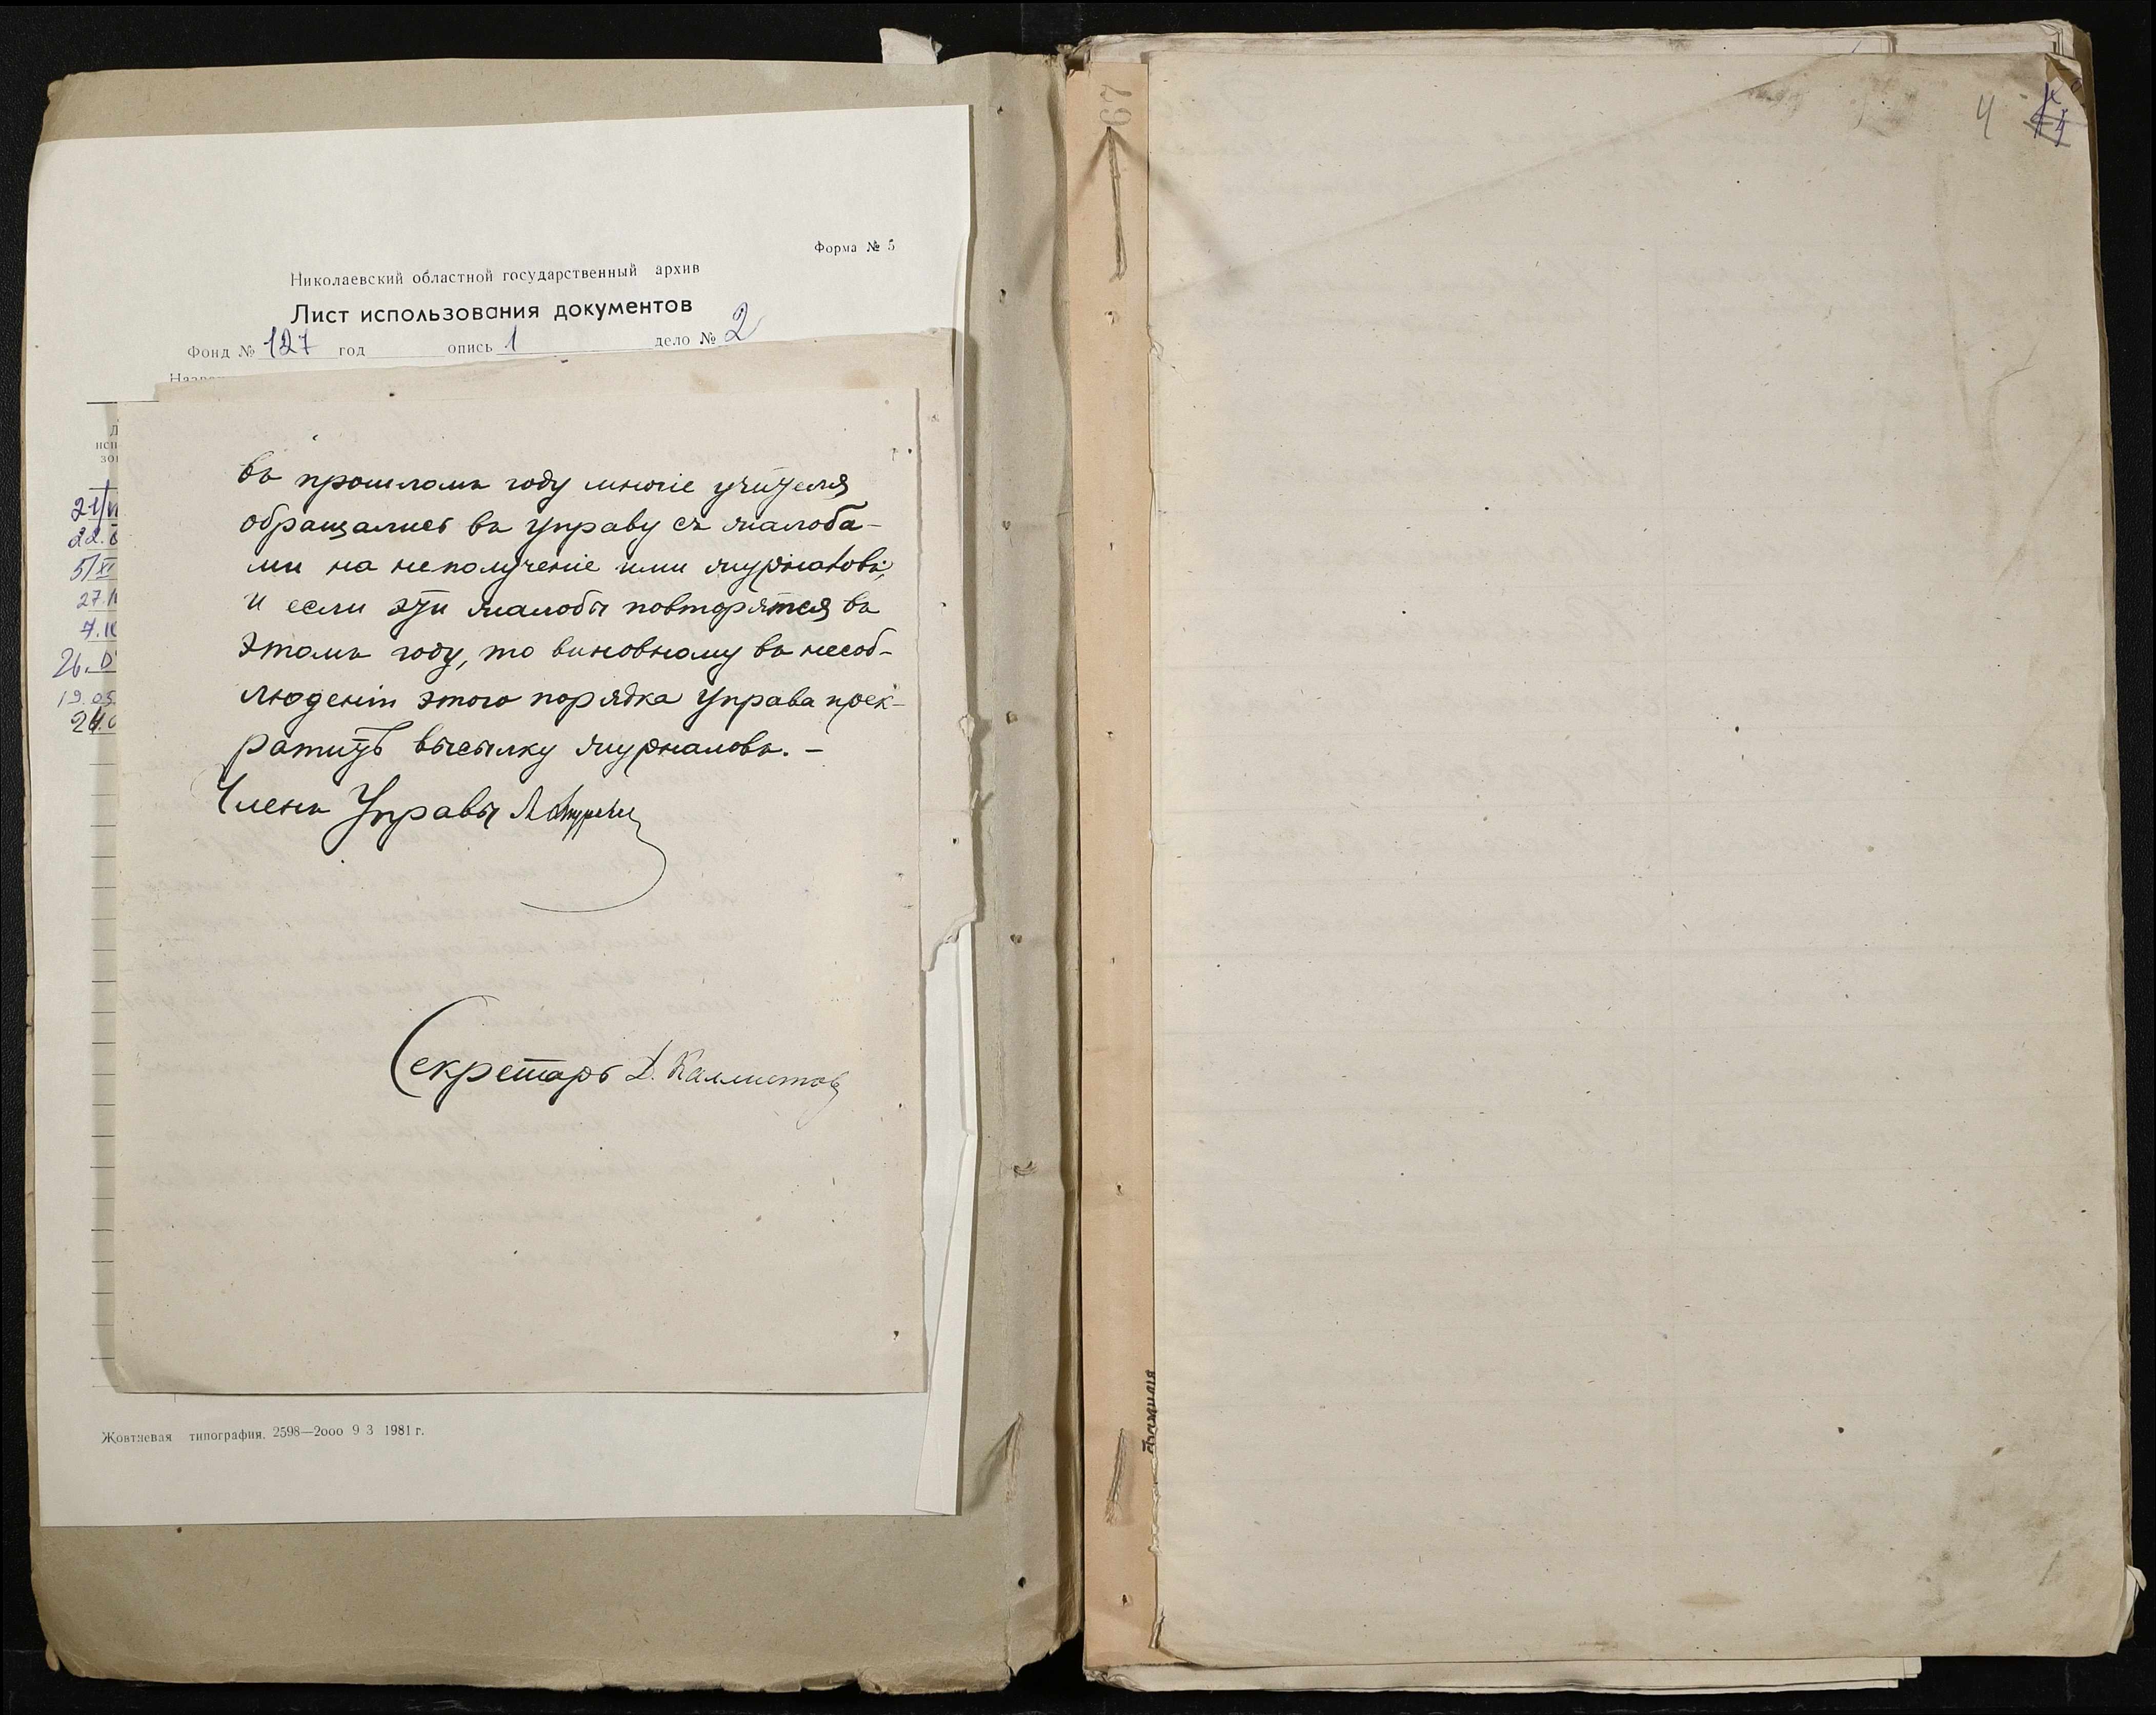 Форма № 5
Николаевский областной государственный архив
Лист использования документов
Фонд № 127 год опись 1 дело № 2
въ прошломъ году многіе учителя
обращались въ управу съ жалоба-
ми на неполученіе ими журналовъ,
и если эти жалобы повторятся въ
этомъ году, то виновному въ несоб-
людении этого порядка управа прек-
ратитъ высылку журналовъ. –
Членъ Управы
Секретарь Д. Каллистов
Жовтневая типография. 2598—2000 9 3 1981 г.
67
4
Фамилія